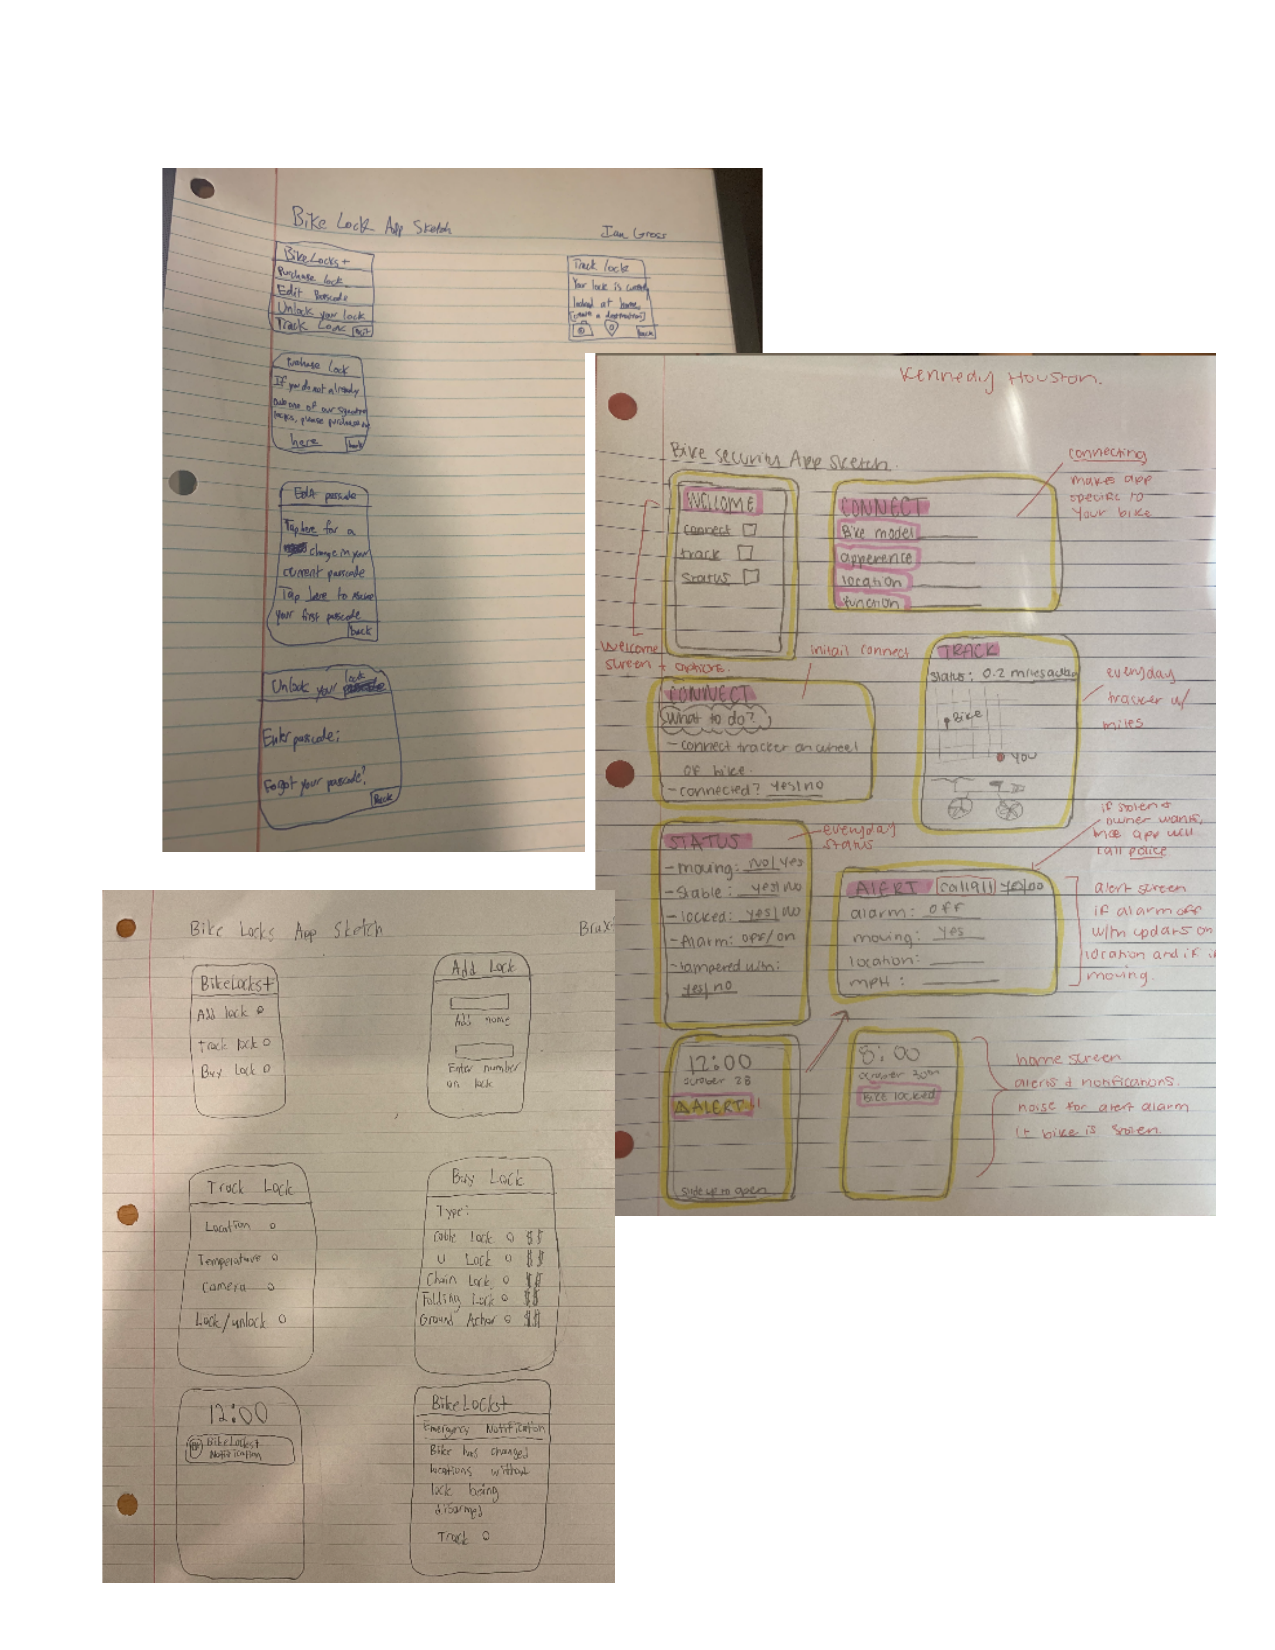 Bike Lock App Sketch
Ian Gross
BikeLocks+
Purchase lock
Edit Passcode
Unlock your lock
Track Lock
Exit
Track lock
Your lock is currently
locked at home
back
Purchase Lock
If you do not already
own one of our signature
locks, please purchase
here
back
Edit passcode
Tap here for a
change in your
current passcode
Tap here to make
your first passcode
back
Unlock your lock
Enter passcode:
Forgot your passcode?
Back
Kennedy Houston.
Bike security App Sketch.
WELCOME
connect
track
status
welcome
screen + options.
CONNECT
Bike model
apperence
location
function
connecting
makes app
specific to
your bike
initail connect
CONNECT
What to do?
- connect tracker on wheel
of bike.
- connected? yes/no
TRACK
status: 0.2 miles away
Bike
YOU
everyday
tracker w/
miles
STATUS
- moving: no/yes
- Stable: yes/no
- locked: yes/no
- Alarm: off/on
- tampered with:
yes/no
everyday
status
if stolen +
owner wants,
app will
call police
ALERT call 911 yes/no
alarm: off
moving: yes
location:
MPH:
alert screen
if alarm off
with updats on
location and if
moving.
12:00
october 28
ALERT!!
slide up to open
8:00
october 30th
Bike locked
home screen
alerts + notifications.
noise for alert alarm
if bike is stolen.
Bike Locks App Sketch
Brax
BikeLocks+
Add lock
Track lock
Buy Lock
Add Lock
Add name
Enter number
on lock
Track Lock
Location
Temperature
Camera
Lock/unlock
Buy Lock
Type:
Cable Lock $$
U Lock $$
Chain Lock $$
Folding Lock $$
Ground Achor $$
12:00
BikeLocks+
Notification
BikeLocks+
Emergency Notification
Bike has changed
locations without
lock being
disarmed
Track